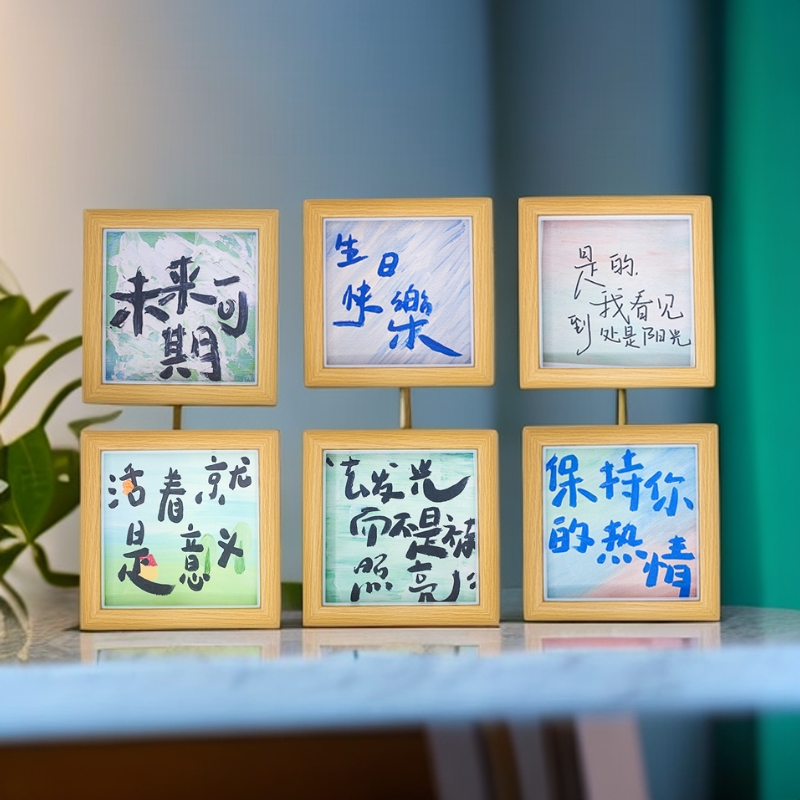 未来可
期
生日
快樂
是的,
我看见
到处是阳光
活着就
是意义
去发光
而不是被
照亮
保持你
的热情